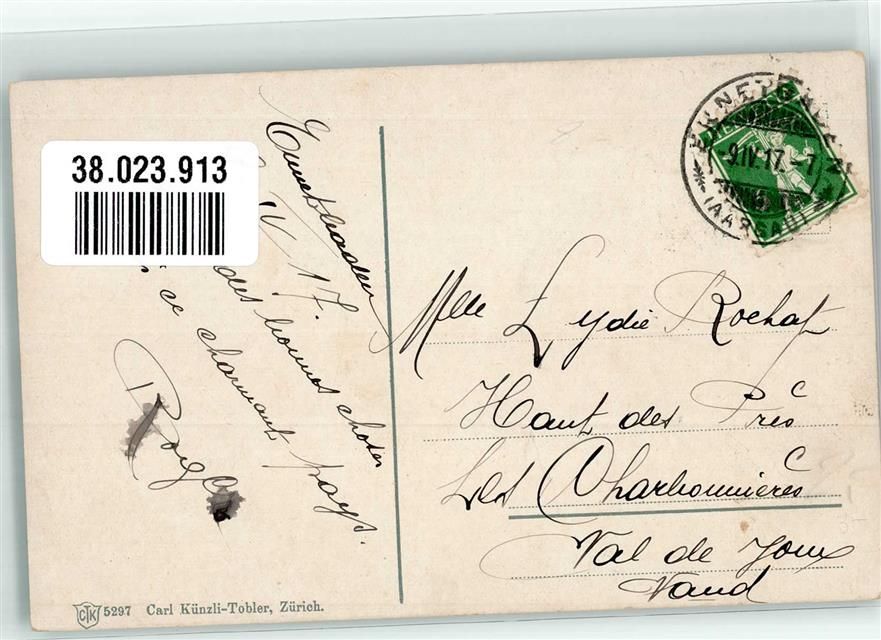 38.023.913
Ennetbaden
IV 17.
des bonnes choses
ce charmant pays.
-9.IV.17.-7
(AARGAU)
HELVETIA
Mlle Lydie Rochat
Haut des Prés
Les Charbonnières
Val de Joux
Vaud
CTK 5297 Carl Künzli-Tobler, Zürich.